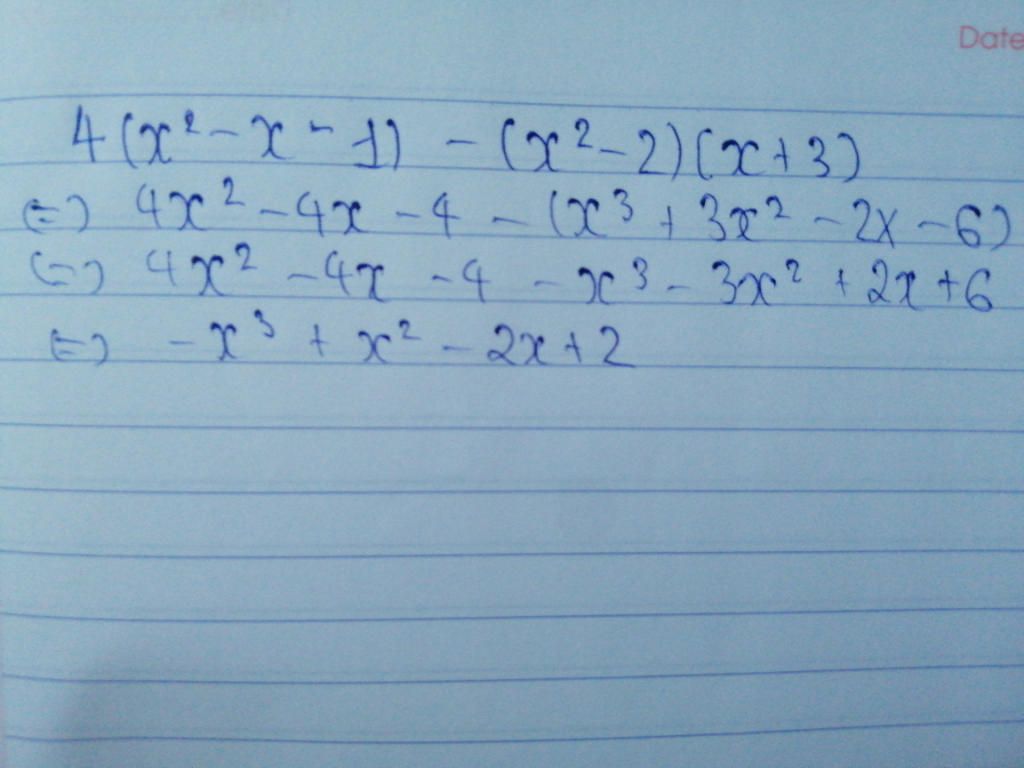 Date
4(x² - x - 1) - (x² - 2)(x + 3)
(=) 4x² - 4x - 4 - (x³ + 3x² - 2x - 6)
(=) 4x² - 4x - 4 - x³ - 3x² + 2x + 6
(=) -x³ + x² - 2x + 2